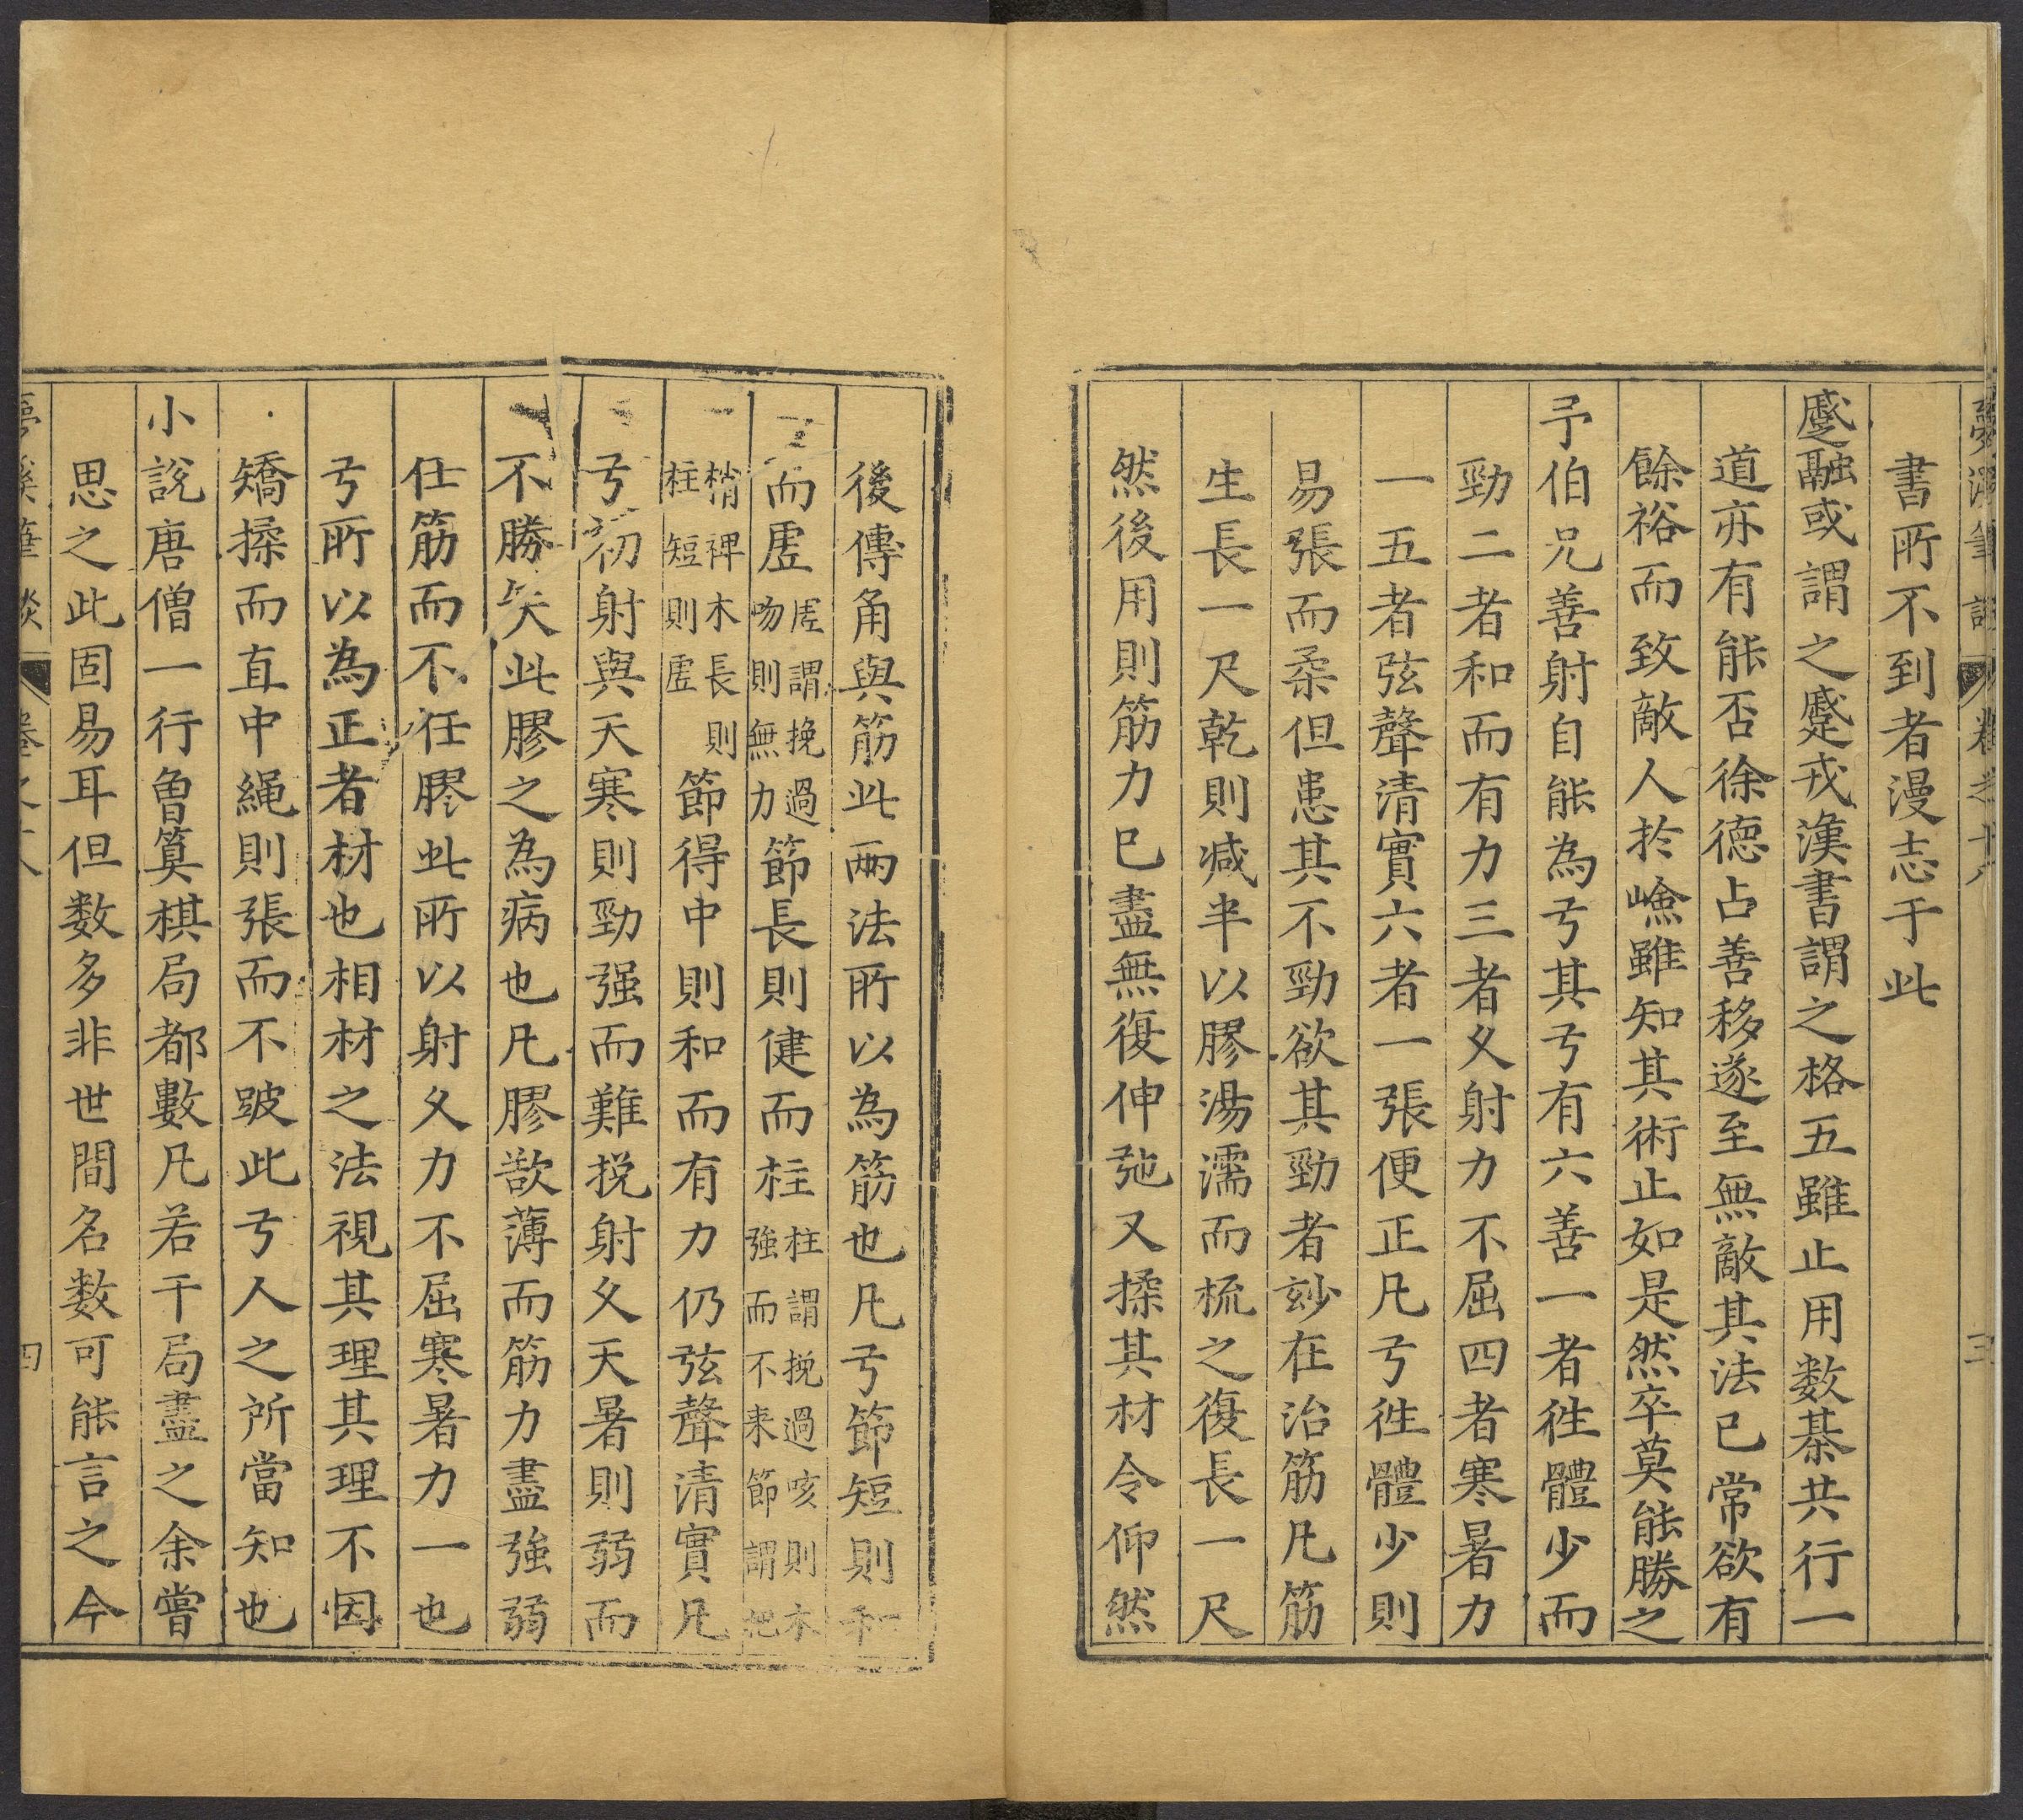 夢溪筆談 卷之十八 三
書所不到者漫志于此
蹙融或謂之蹙戎漢書謂之格五雖止用数棊共行一
道亦有能否徐德占善移遂至無敵其法已常欲有
餘裕而致敵人於嶮雖知其術止如是然卒莫能勝之
予伯兄善射自能為弓其弓有六善一者徃體少而
勁二者和而有力三者乆射力不屈四者寒暑力
一五者弦聲清實六者一張便正凡弓徃體少則
易張而柔但患其不勁欲其勁者玅在治筋凡筋
生長一尺乾則减半以膠湯濡而梳之復長一尺
然後用則筋力已盡無復伸弛又揉其材令仰然
後傳角與筋此兩法所以為筋也凡弓節短則和
而虛虛謂挽過吻則無力節長則健而柱柱謂挽過咳則木強而不来節謂把
梢裨木長則柱短則虛節得中則和而有力仍弦聲清實凡
弓初射與天寒則勁强而難挽射乆天暑則弱而
不勝矢此膠之為病也凡膠欲薄而筋力盡強弱
任筋而不任膠此所以射乆力不屈寒暑力一也
弓所以為正者材也相材之法視其理其理不因
矯揉而直中繩則張而不跛此弓人之所當知也
小說唐僧一行曾算棋局都數凡若干局盡之余嘗
思之此固易耳但数多非世間名数可能言之今
夢溪筆談 卷之十八 四